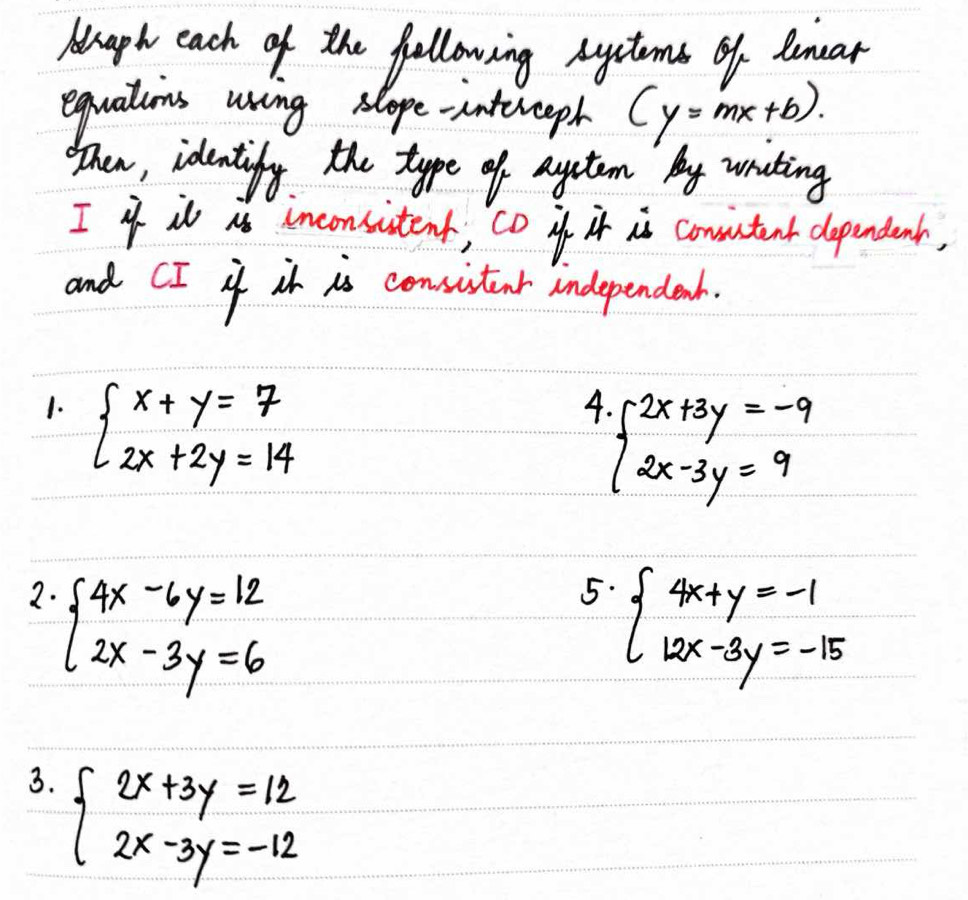 Graph each of the following systems of linear
equations using slope-intercept (y = mx + b).
Then, identify the type of system by writing
I if it is inconsistent, CD if it is consistent dependent,
and CI if it is consistent independent.
1. { x + y = 7
2x + 2y = 14
4. { 2x + 3y = -9
2x - 3y = 9
2. { 4x - 6y = 12
2x - 3y = 6
5. { 4x + y = -1
12x - 3y = -15
3. { 2x + 3y = 12
2x - 3y = -12